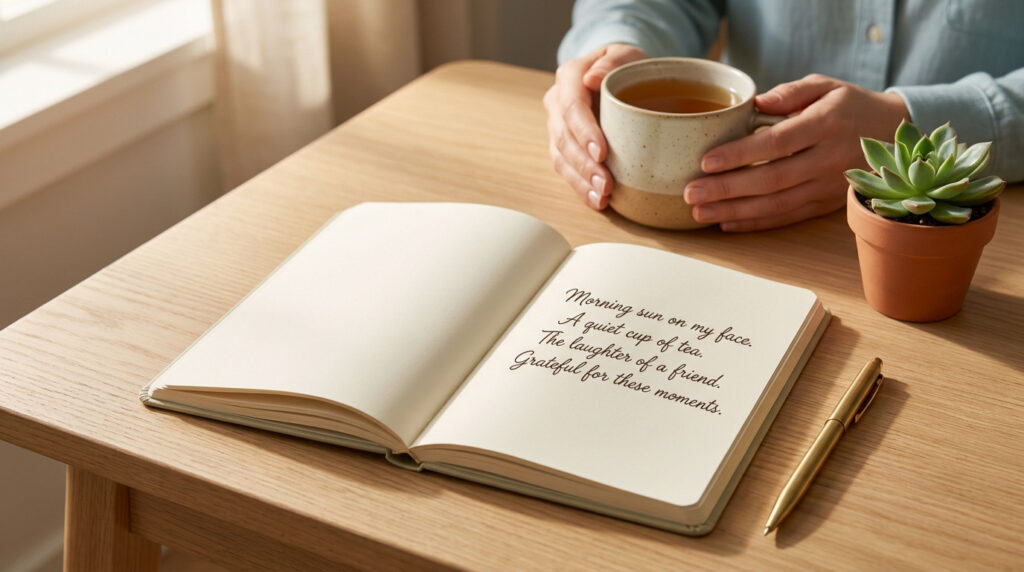 Morning sun on my face.
A quiet cup of tea.
The laughter of a friend.
Grateful for these moments.